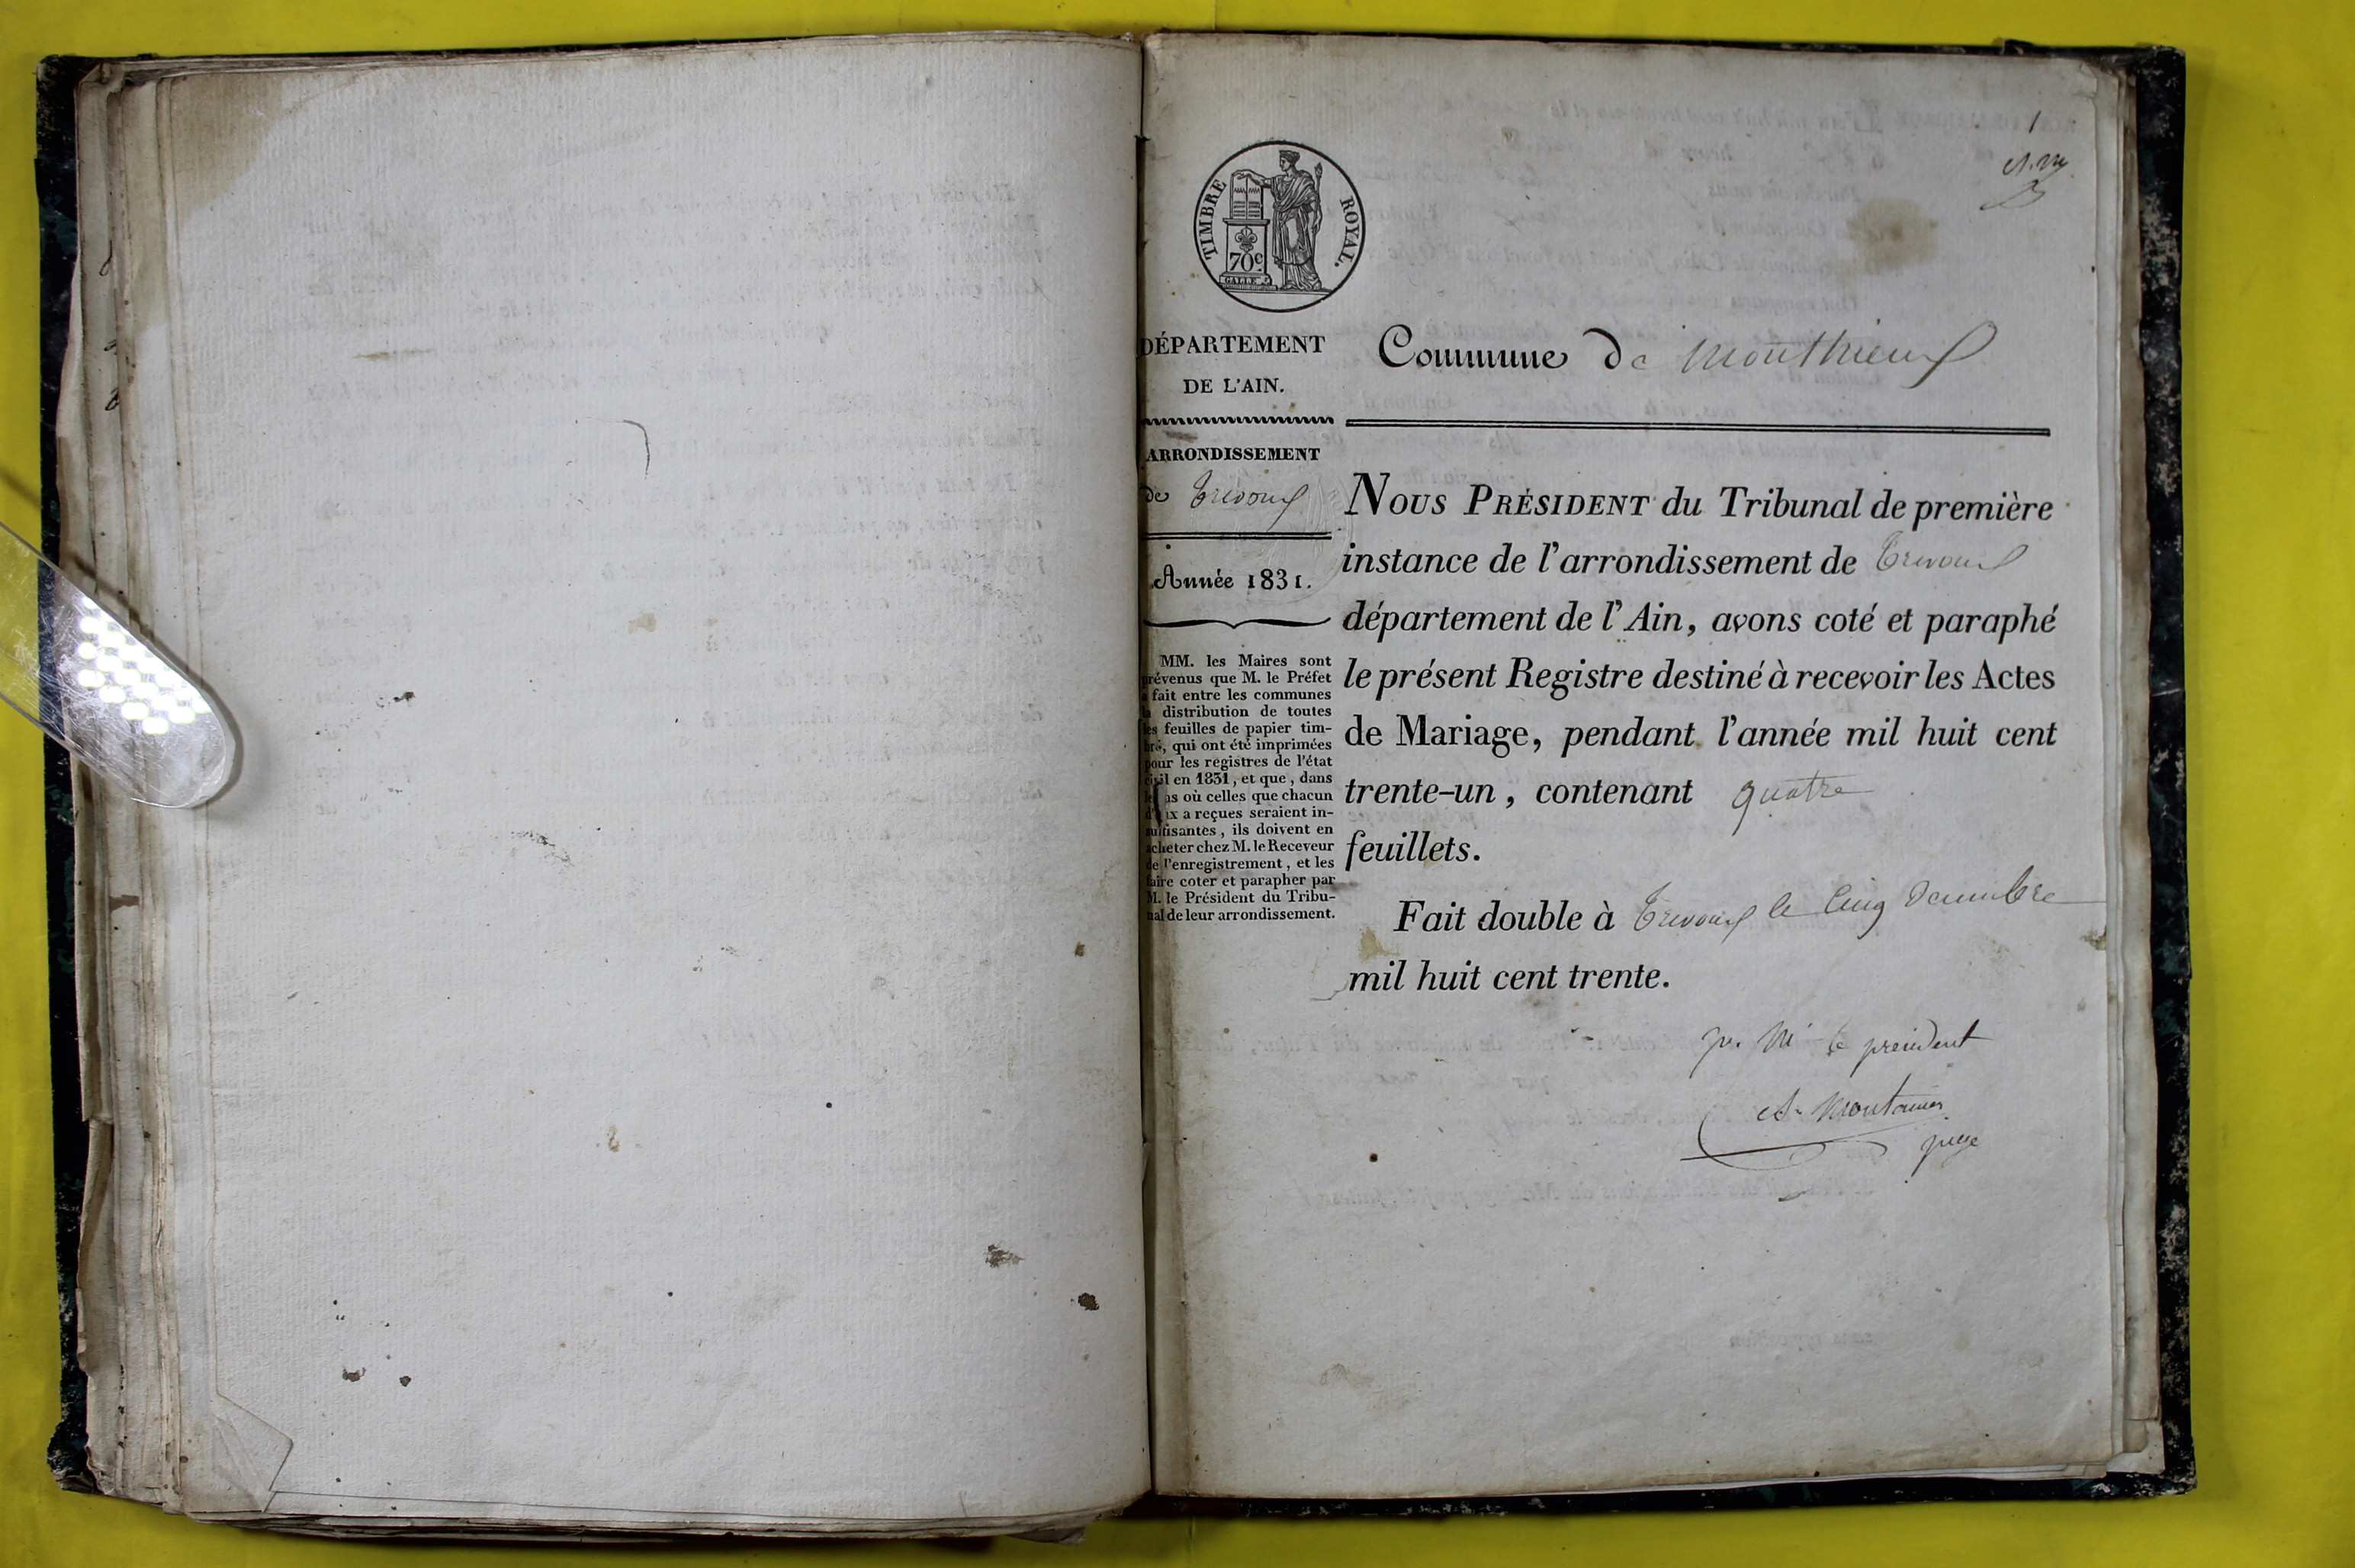 1
A. M
TIMBRE ROYAL.
70c
GALLE
DÉPARTEMENT
DE L'AIN.
Commune de Monthieux
ARRONDISSEMENT
de Trevoux
Année 1831.
MM. les Maires sont
prévenus que M. le Préfet
a fait entre les communes
la distribution de toutes
les feuilles de papier tim-
bré, qui ont été imprimées
pour les registres de l'état
civil en 1831, et que, dans
le cas où celles que chacun
d'eux a reçues seraient in-
suffisantes, ils doivent en
acheter chez M. le Receveur
de l'enregistrement, et les
faire coter et parapher par
M. le Président du Tribu-
nal de leur arrondissement.
NOUS PRÉSIDENT du Tribunal de première
instance de l'arrondissement de Trevoux
département de l'Ain, avons coté et paraphé
le présent Registre destiné à recevoir les Actes
de Mariage, pendant l'année mil huit cent
trente-un, contenant quatre
feuillets.
Fait double à Trevoux le Cinq Decembre
mil huit cent trente.
pr. Mr le president
juge